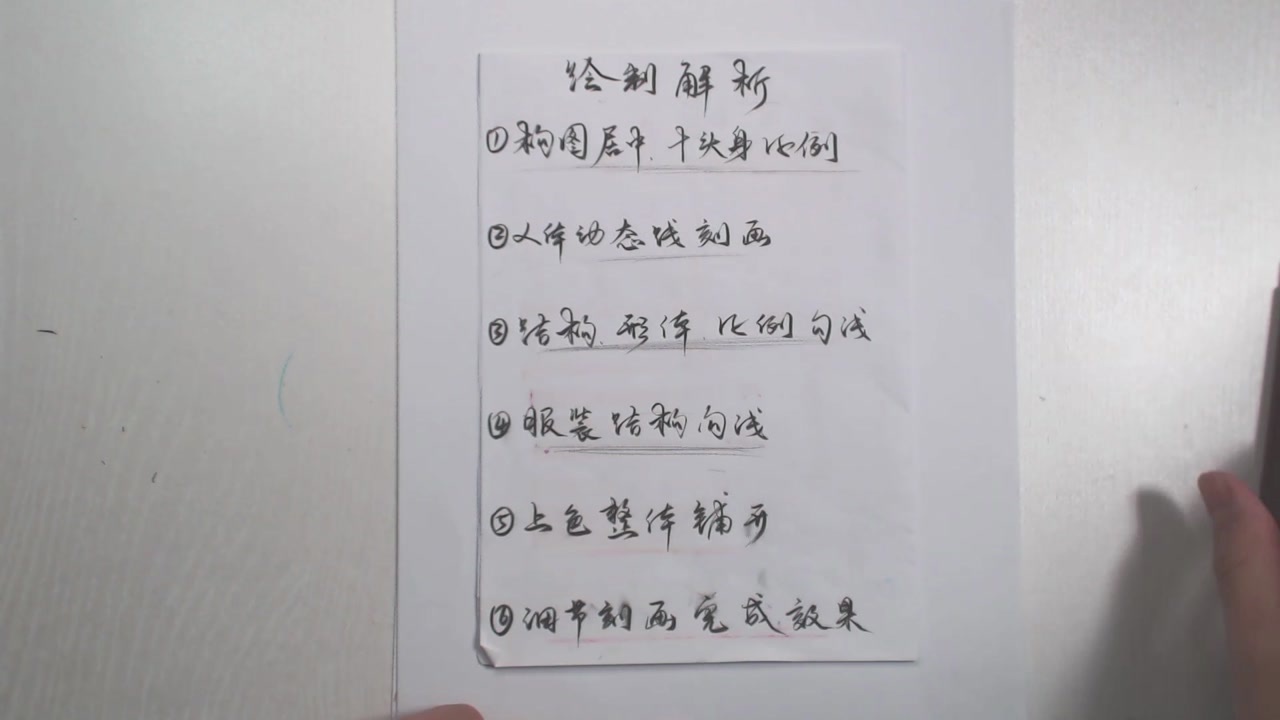 绘制解析
①构图居中、十头身比例
②人体动态线刻画
③结构、形体、比例勾线
④服装结构勾线
⑤上色整体铺开
⑥细节刻画完成效果